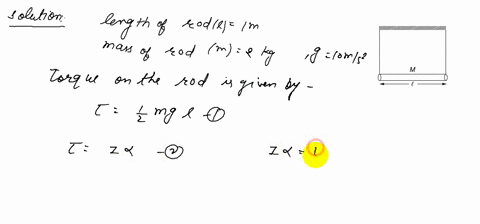 Solution:
length of rod(l) = 1m
mass of rod (m) = 2 kg , g = 10 m/s²
M
l
Torque on the rod is given by -
τ = 1/2 mgl -①
τ = Iα -② Iα = 1